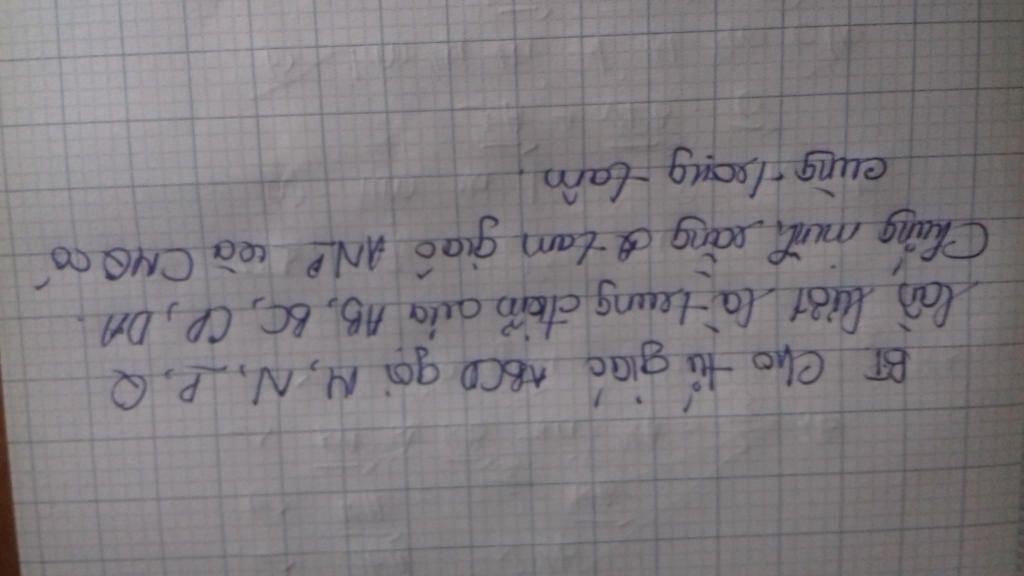 BT Cho tứ giác ABCD gọi M, N, P, Q
lần lượt là trung điểm của AB, BC, CD, DA.
Chứng minh rằng 2 tam giác ANP và CMQ có
cùng trọng tâm.